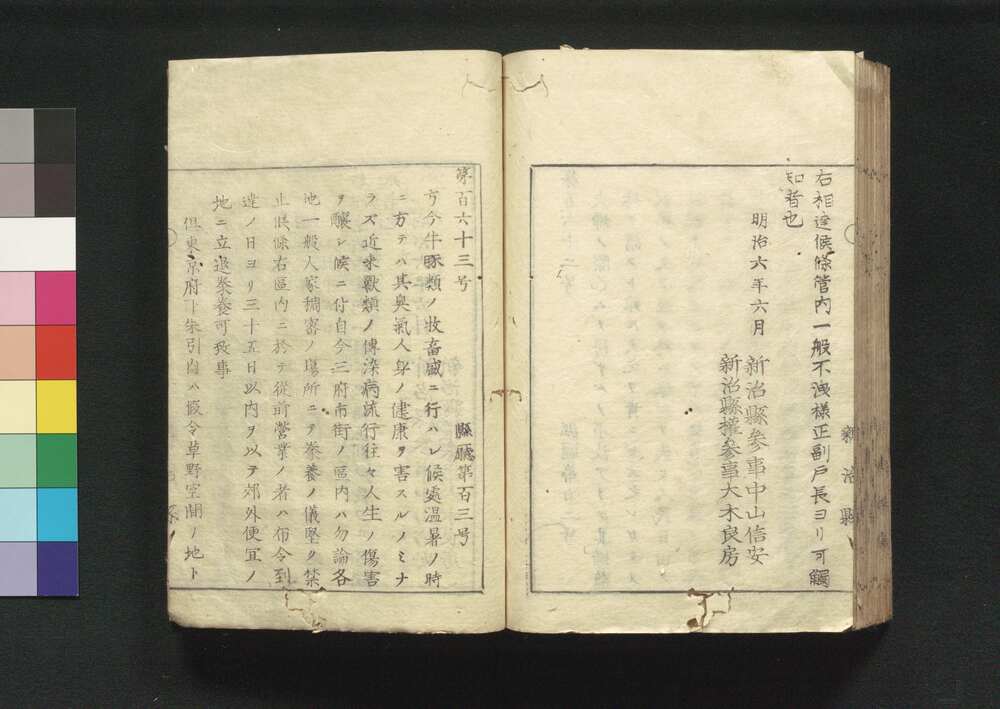 右相達候條管内一般不洩様正副戸長ヨリ可觸
知者也
明治六年六月
新治縣参事中山信安
新治縣權参事大木良房
新治縣
第百六十三号
縣廳第百三号
方今牛豚類ノ牧畜盛ニ行ハレ候處温暑ノ時
ニ方テハ其臭氣人身ノ健康ヲ害スルノミナ
ラズ近来獣類ノ傳染病流行往々人生ノ傷害
ヲ釀シ候ニ付自今三府市街ノ區内ハ勿論各
地一般人家稠密ノ場所ニテ豢養ノ儀堅ク禁
止候條右區内ニ於テ從前營業ノ者ハ布令到
達ノ日ヨリ三十五日以内ヲ以テ郊外便宜ノ
地ニ立退豢養可致事
但東京府下朱引内ハ假令草野空閑ノ地ト